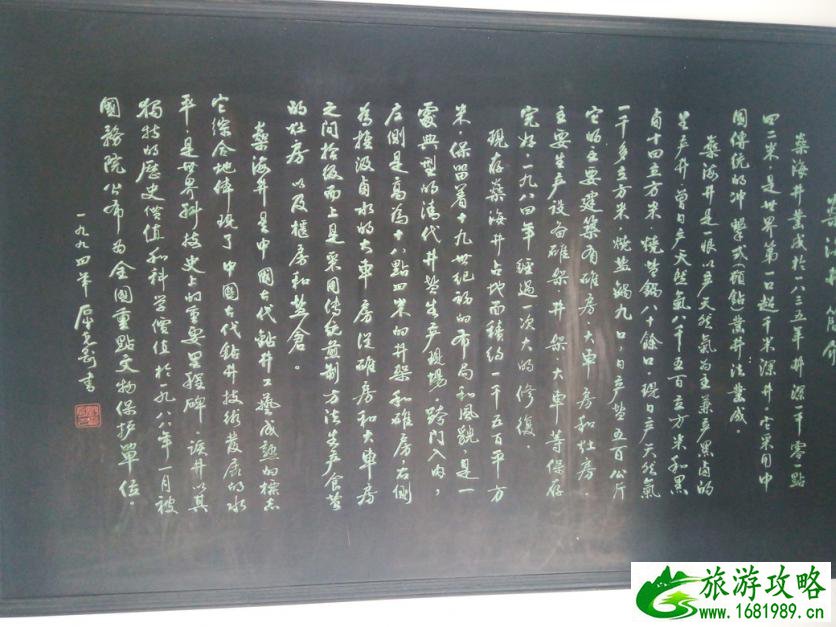 燊海井簡介
燊海井鑿成於一八三五年井深一千零一點
四二米是世界第一口超千米深井。它采用中
國傳統的冲擊式頓鉆鑿井法鑿成。
燊海井是一眼以产天然氣为主兼产黑卤的
生产井,曾日产天然氣八千五百立方米和黑
卤十四立方米,燒盐鍋八十餘口,現日产天然氣
一千多立方米,燒盐鍋九口,日产盐五百公斤
它的主要建築有碓房、大車房和灶房,
主要生产设备碓架、井架、大車等保存
完好,一九八四年經過一次大的修復。
現存燊海井占地面積約一千五百平方
米,保留着十九世纪初的布局和風貌,是一
處典型的清代井盐生产現場,跨门入内,
左侧是高為十八點四米的井架和碓房,右側
為提汲卤水的大車房從碓房和大車房
之间拾级而上是采用傳统煎制方法生产食盐
的灶房以及櫃房和盐倉。
燊海井是中國古代鉆井工藝成熟的標志
它综合地体現了中國古代鉆井技術發展的水
平,是世界科技史上的重要里程碑該井以其
獨特的歷史價值和科学價值於一九八八年一月被
國務院公布為全國重點文物保护單位。
一九九四年 書
旅游攻略
www.1681989.cn